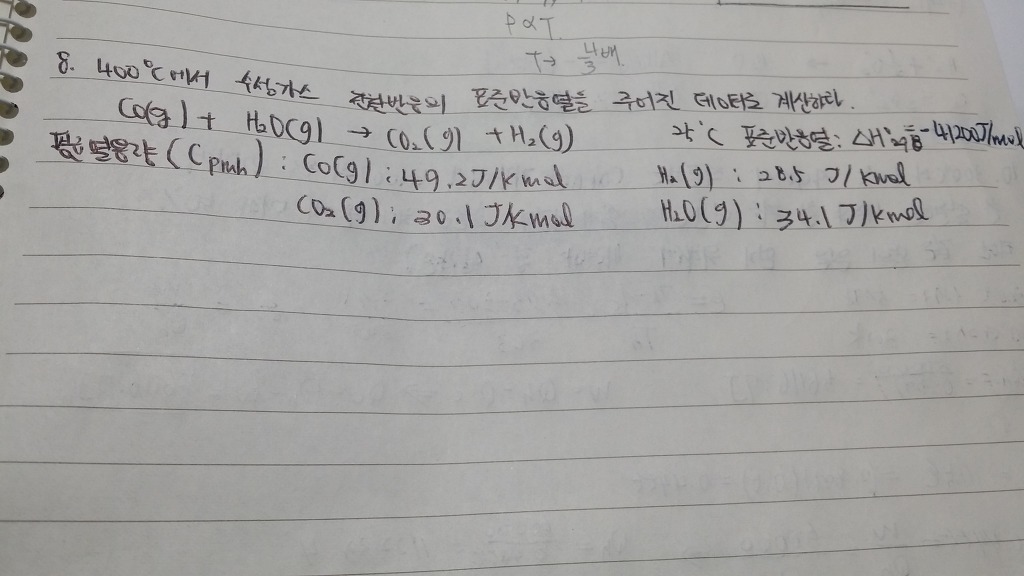 P∝T.
T→ 4/3배.
8. 400℃에서 수성가스 전환반응의 표준반응열을 주어진 데이터로 계산하라.
CO(g) + H₂O(g) → CO₂(g) + H₂(g) 25℃ 표준반응열: ΔH°₂₉₈=-41200J/mol
평균열용량(Cpmh): CO(g): 49.2J/Kmol H₂(g): 28.5 J/Kmol
CO₂(g): 30.1 J/Kmol H₂O(g): 34.1 J/Kmol